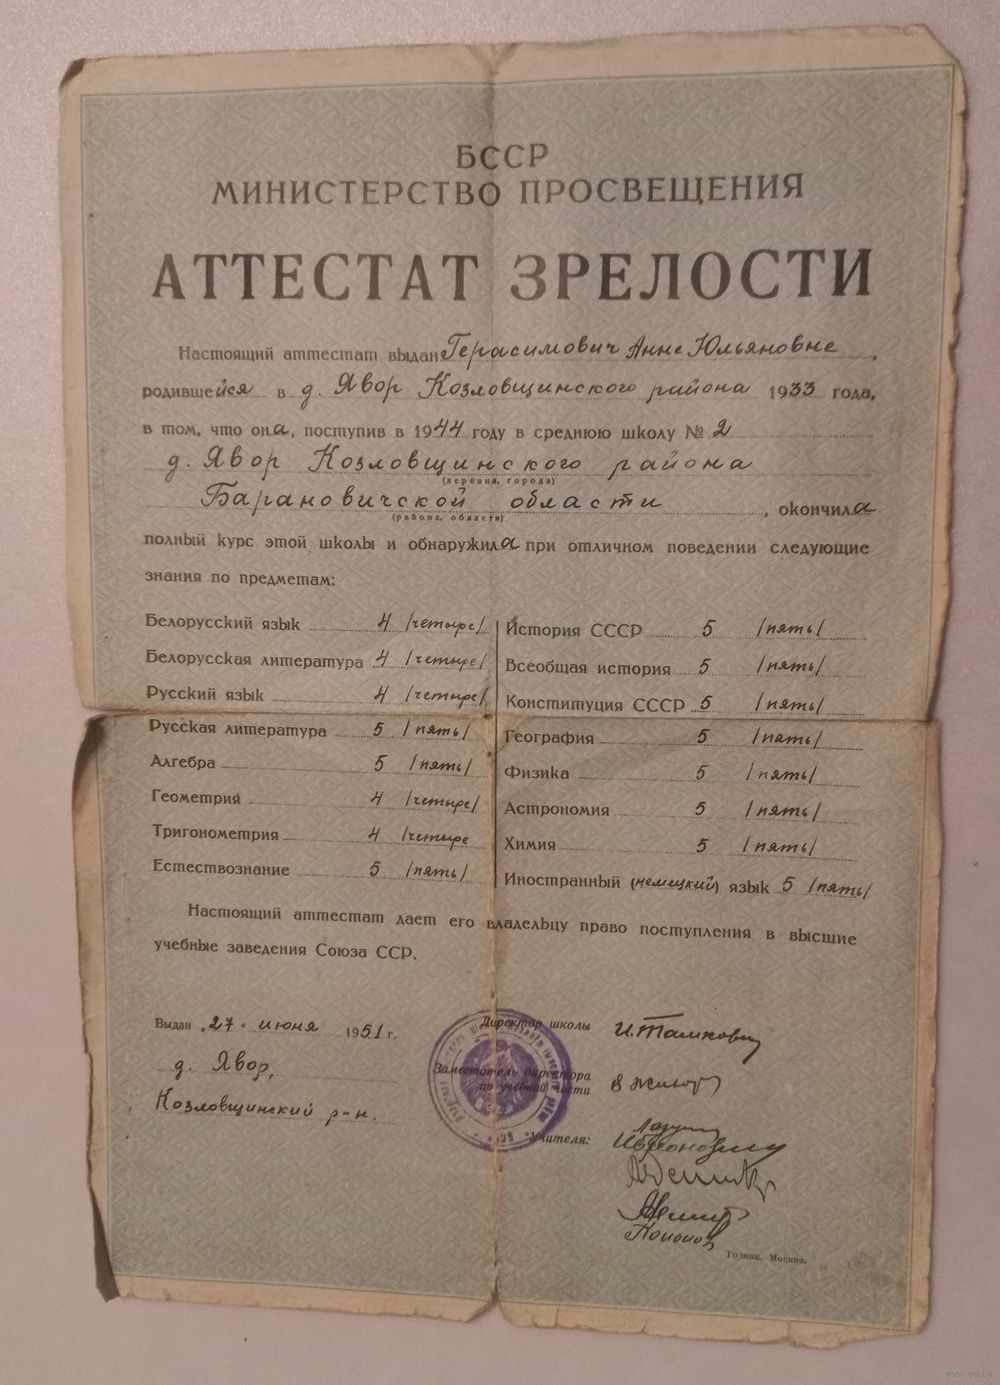 БССР
МИНИСТЕРСТВО ПРОСВЕЩЕНИЯ
АТТЕСТАТ ЗРЕЛОСТИ
Настоящий аттестат выдан Герасимович Анне Юльяновне,
родившейся в д. Явор Козловщинского района 1933 года,
в том, что она, поступив в 1944 году в среднюю школу № 2
д. Явор Козловщинского района
(деревни, города)
Барановичской области, окончила
(района, области)
полный курс этой школы и обнаружила при отличном поведении следующие
знания по предметам:
Белорусский язык 4 /четыре/
Белорусская литература 4 /четыре/
Русский язык 4 /четыре/
Русская литература 5 /пять/
Алгебра 5 /пять/
Геометрия 4 /четыре/
Тригонометрия 4 /четыре
Естествознание 5 /пять/
История СССР 5 /пять/
Всеобщая история 5 /пять/
Конституция СССР 5 /пять/
География 5 /пять/
Физика 5 /пять/
Астрономия 5 /пять/
Химия 5 /пять/
Иностранный (немецкий) язык 5 /пять/
Настоящий аттестат дает его владельцу право поступления в высшие
учебные заведения Союза ССР.
Выдан „27“ июня 1951 г.
д. Явор,
Козловщинский р-н.
Директор школы
Заместитель директора
по учебной части
Учителя:
Гознак. Москва.
www.ay.by